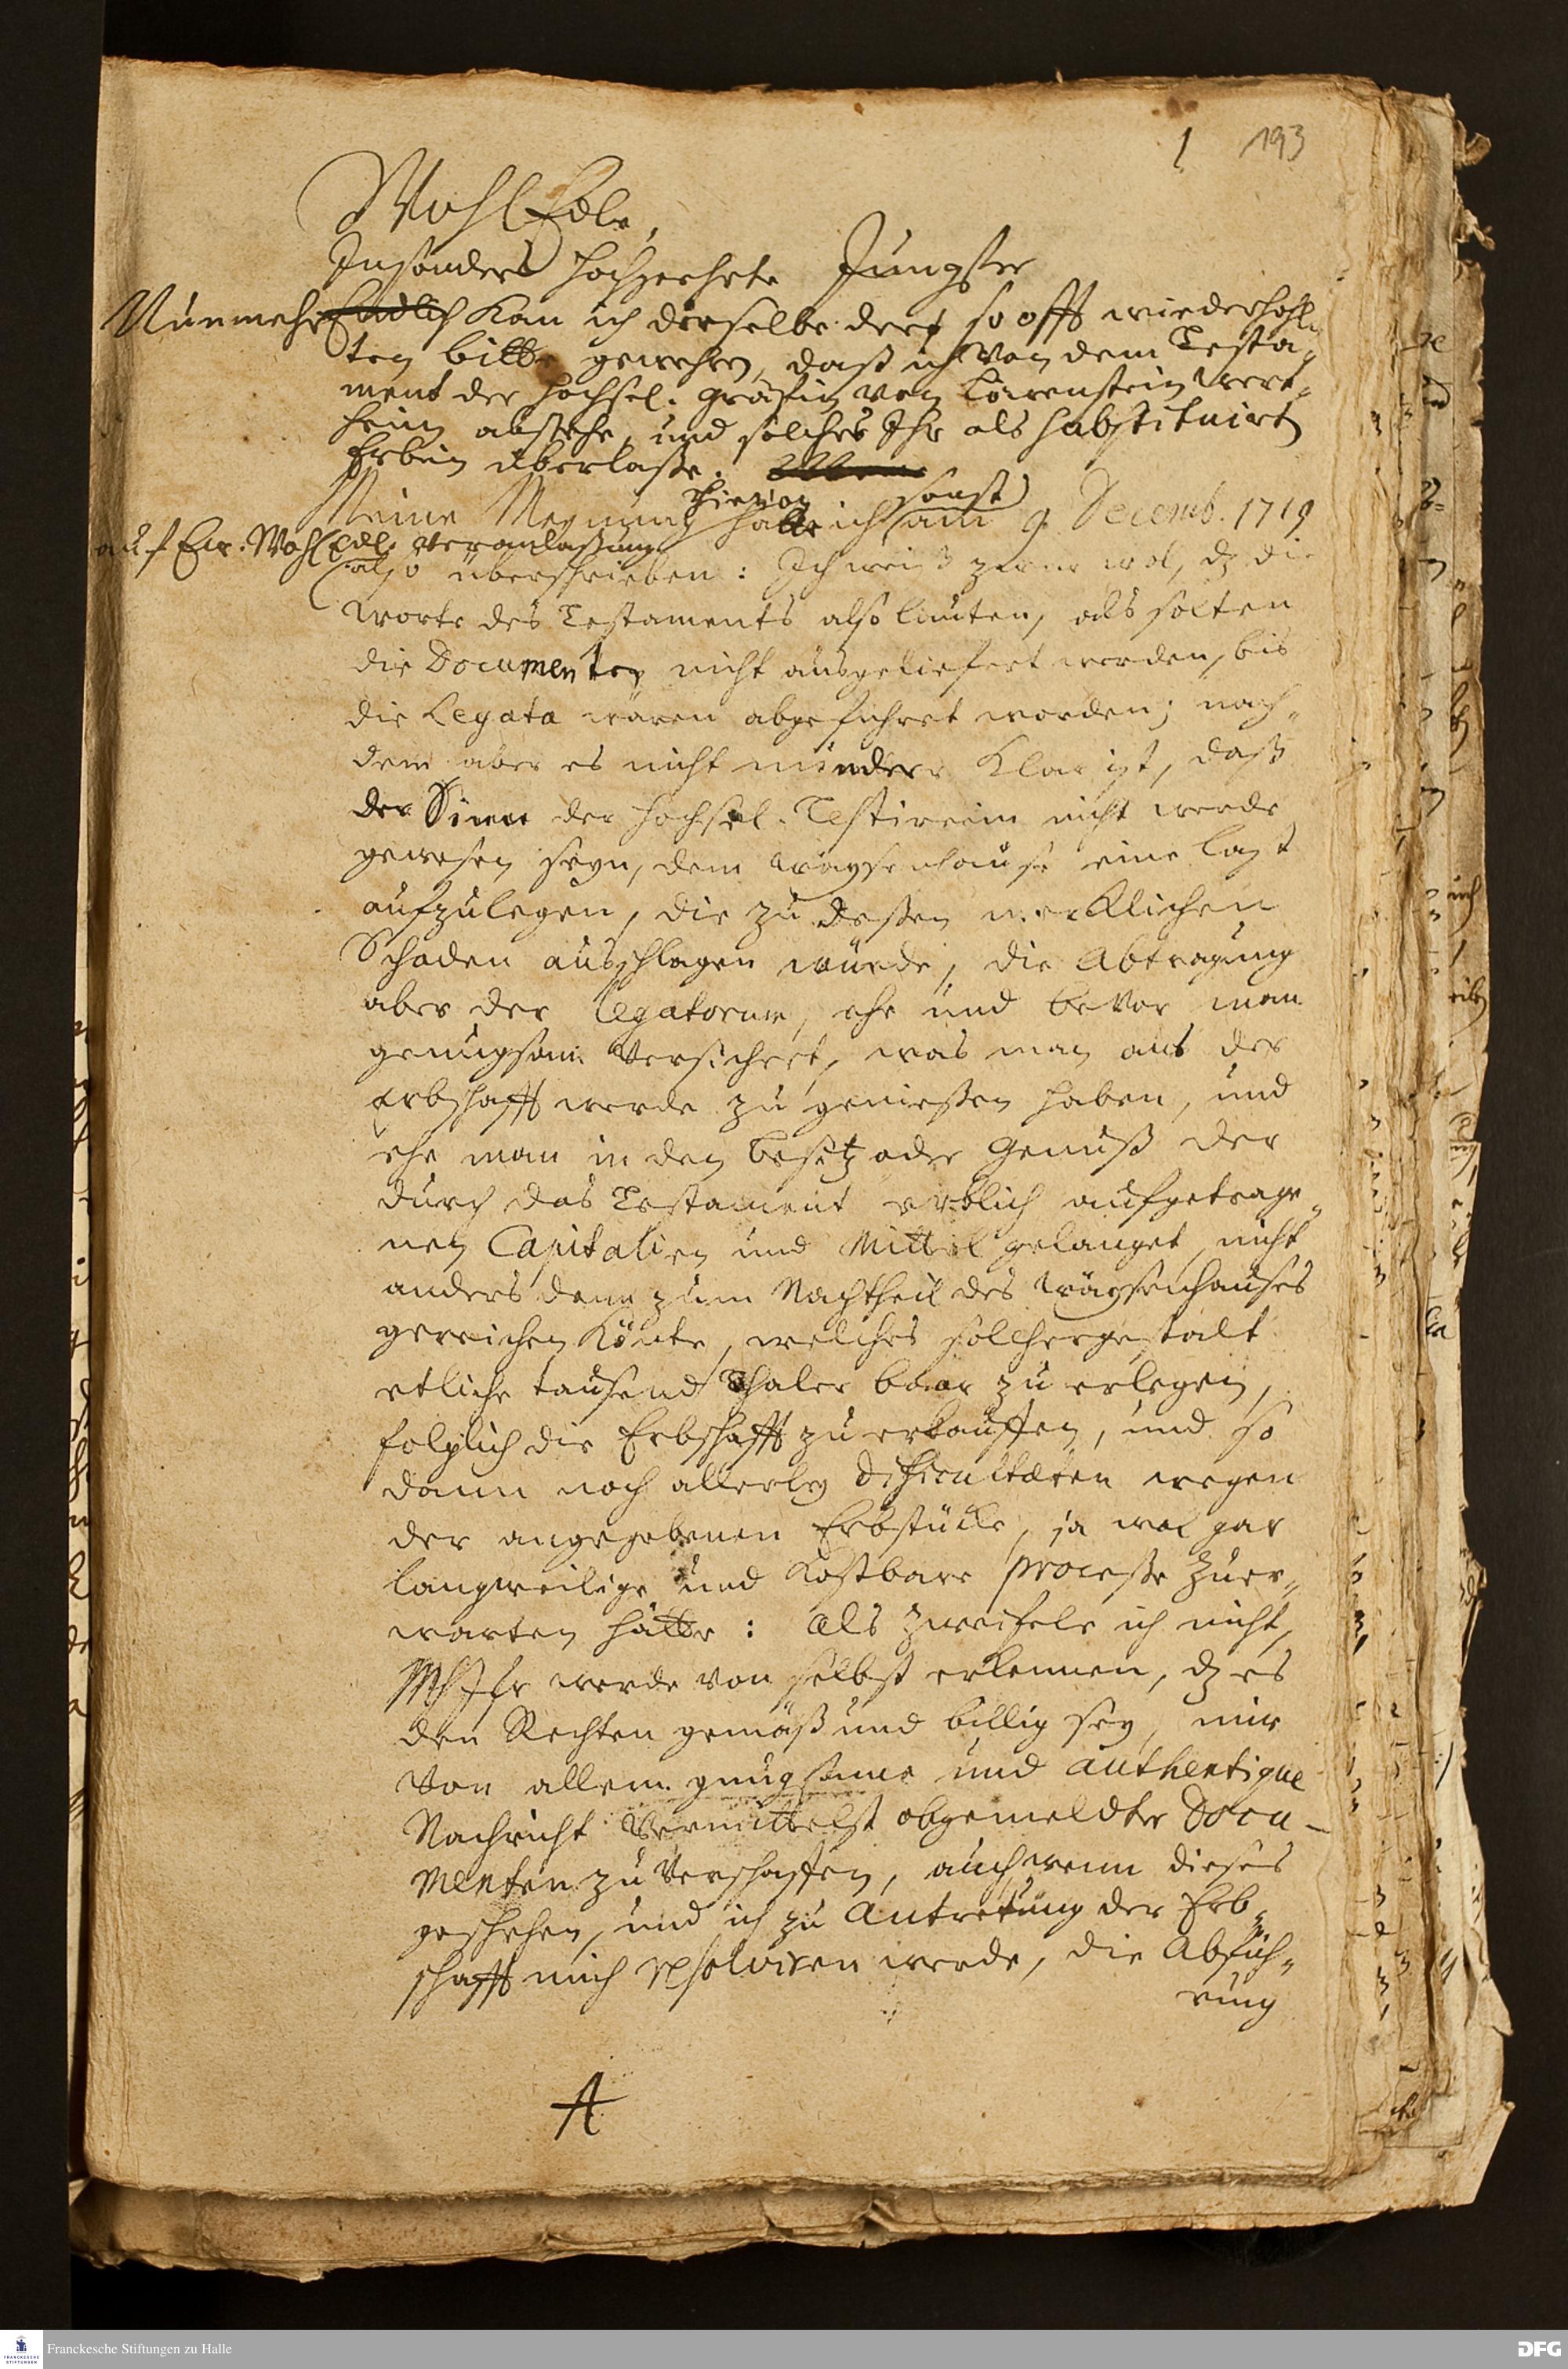 1 193
WohlEdle,
Insonders hochgeehrte Jungfer
Nunmehr Endlich kan ich derselbe dero so offt wiederhohl-
ten bitte gewehren, daß ich von dem Testa-
ment der hochsel. Gräfin von Löwenstein Wert-
heim abstehe, und solches Ihr als substituirte
Erbin überlaße.
Meine Meynung hievon hatte ich sonst am 9. Decemb. 1719
auf Ew. WohlEdl. Veranlaßung
also überschrieben: Ich weiß zwar wol, dz die
worte des Testaments also lauten, als solten
die Documenten nicht ausgeliefert werden, bis
die Legata wären abgeführet worden; nach-
dem aber es nicht minder klar ist, daß
der Sinn der hochsel. Testirerin nicht werde
gewesen seyn, dem Waysenhause eine last
aufzulegen, die zu deßen mercklichen
Schaden ausschlagen würde, die Abtragung
aber der legatorum, ehe und bevor man
genugsam versichert, was man aus der
Erbschafft werde zu genießen haben, und
ehe man in den besitz oder Genuß der
durch das Testament erblich aufgetrage-
nen Capitalien und Mittel gelanget, nicht
anders denn zum Nachtheil des Waysenhauses
gereichen könte, welches solchergestalt
etliche tausend Thaler baar zu erlegen,
folglich die Erbschafft zu erkauffen, und so
dann noch allerley difficultäten wegen
der angegebenen Erbstücke, ja wol gar
langweilige und kostbare processe zu er-
warten hätte: Als zweifele ich nicht,
werde von selbst erkennen, dz es
den Rechten gemäß und billig sey, mir
von allem gnugsame und authentique
Nachricht vermittelst obgemeldter Docu-
menten zu verschaffen, auch wenn dieses
geschehen, und ich zu Antretung der Erb-
schafft mich resolviren werde, die Abfüh-
rung
A
Franckesche Stiftungen zu Halle
DFG